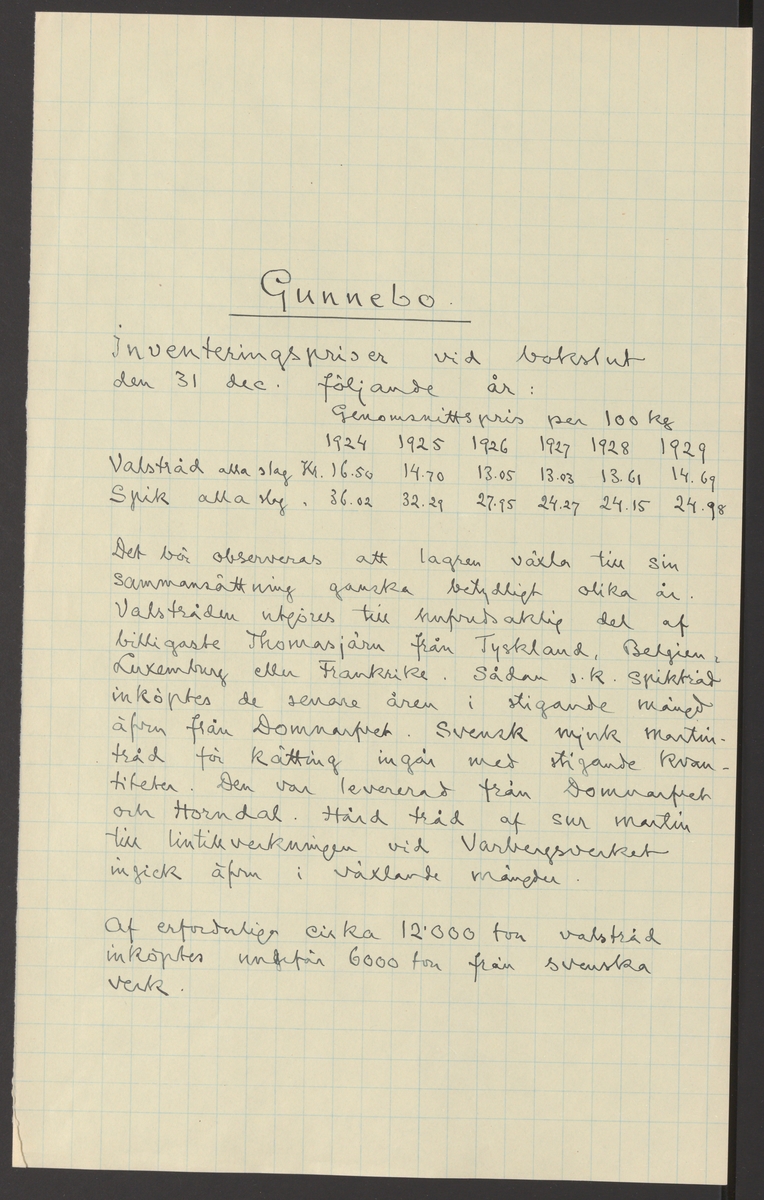 Gunnebo.
Inventeringspriser vid bokslut
den 31 dec. följande år:
Genomsnittspris per 100 kg
1924 1925 1926 1927 1928 1929
Valstråd alla slag Kr. 16.50 14.70 13.05 13.03 13.61 14.69
Spik alla slag . 36.02 32.29 27.95 24.27 24.15 24.98
Det bör observeras att lagren växla till sin
sammansättning ganska betydligt olika år.
Valstråden utgöres till hufvudsaklig del af
billigaste Thomasjärn från Tyskland, Belgien,
Luxemburg eller Frankrike. Sådan s.k. spiktråd
inköptes de senare åren i stigande mängd
äfven från Domnarfvet. Svensk mjuk martin-
tråd för kätting ingår med stigande kvan-
titeter. Den var levererad från Domnarfvet
och Horndal. Hård tråd af sur martin
till lintillverkningen vid Varbergsverket
ingick äfven i växlande mängder.
Af erforderliga cirka 12'000 ton valstråd
inköptes ungefär 6000 ton från svenska
verk.